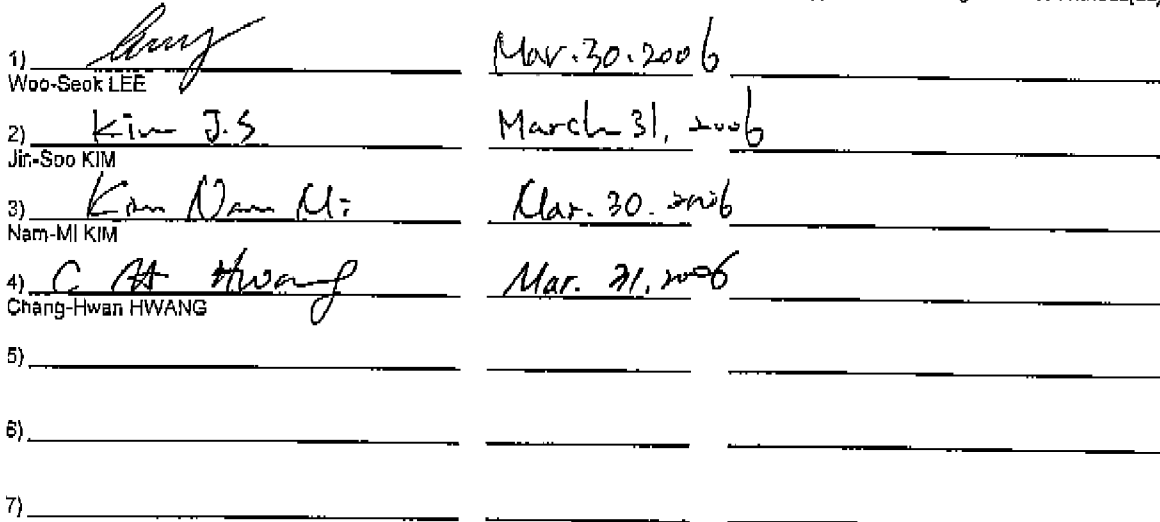 1) Mar.30.2006
Woo-Seok LEE
2) Kim J.S March 31, 2006
Jin-Soo KIM
3) Kim Nam Mi Mar. 30. 2006
Nam-Mi KIM
4) C H Hwang Mar. 31, 2006
Chang-Hwan HWANG
5)
6)
7)